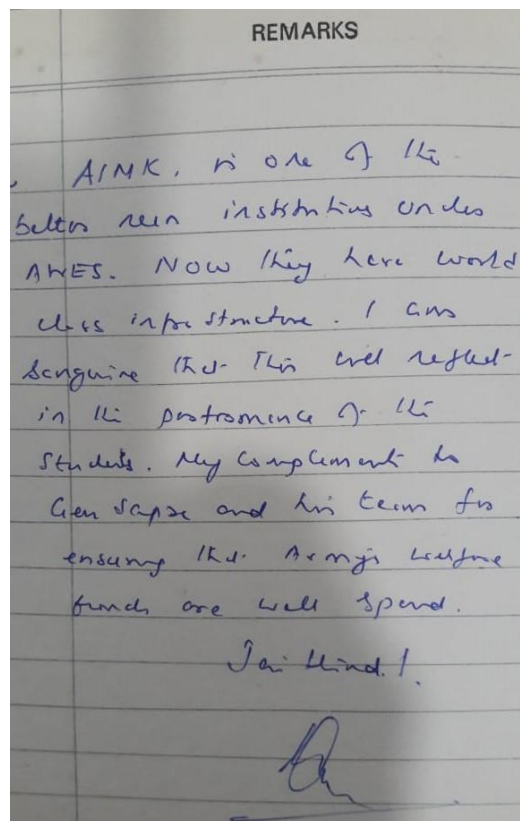 REMARKS
AIMK, is one of the
better run institutions under
AWES. Now they have world
class infra structure. I am
sanguine that this will reflect
in the performance of the
students. My complement to
Gen and his team for
ensuring that Army's welfare
funds are well spend.
Jai Hind!